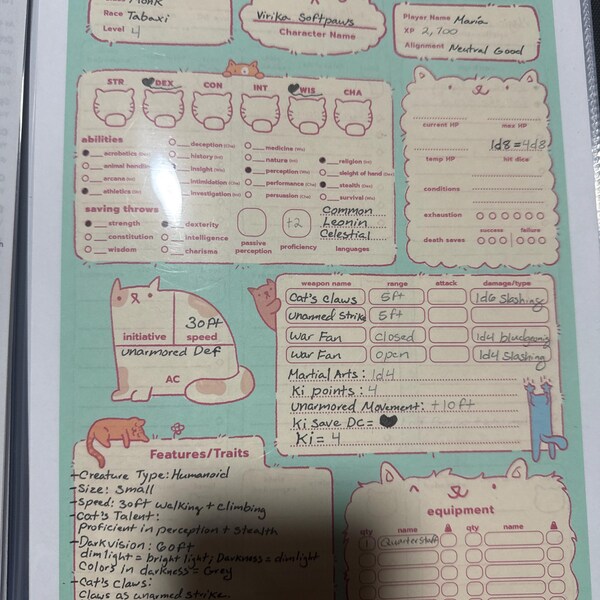 Monk
Race Tabaxi
Level 4
Virika Softpaws
Character Name
Player Name Maria
XP 2,700
Alignment Neutral Good
STR DEX CON INT WIS CHA
abilities
acrobatics (Dex)
animal handling
arcana (Int)
athletics (Str)
deception (Cha)
history (Int)
insight (Wis)
intimidation (Cha)
investigation (Int)
medicine (Wis)
nature (Int)
perception (Wis)
performance (Cha)
persuasion (Cha)
religion (Int)
sleight of hand (Dex)
stealth (Dex)
survival (Wis)
saving throws
strength
constitution
wisdom
dexterity
intelligence
charisma
passive perception
+2
proficiency
Common
Leonin
Celestial
languages
current HP max HP
1d8=4d8
temp HP hit dice
conditions
exhaustion
success failure
death saves
initiative
30ft
speed
unarmored Def
AC
weapon name range attack damage/type
Cat's Claws 5ft 1d6 Slashing
Unarmed Strike 5ft
War Fan closed 1d4 bludgeoning
War Fan open 1d4 Slashing
Martial Arts: 1d4
Ki points: 4
Unarmored Movement: +10ft
Ki save DC=
Ki = 4
Features/Traits
-Creature Type: Humanoid
-Size: Small
-Speed: 30ft walking + climbing
-Cat's Talent:
Proficient in perception + stealth
-Darkvision: 60ft
dim light = bright light; Darkness = dimlight
Colors in darkness = Grey
-Cat's Claws:
Claws as unarmed strike
equipment
qty name qty name
1 Quarterstaff